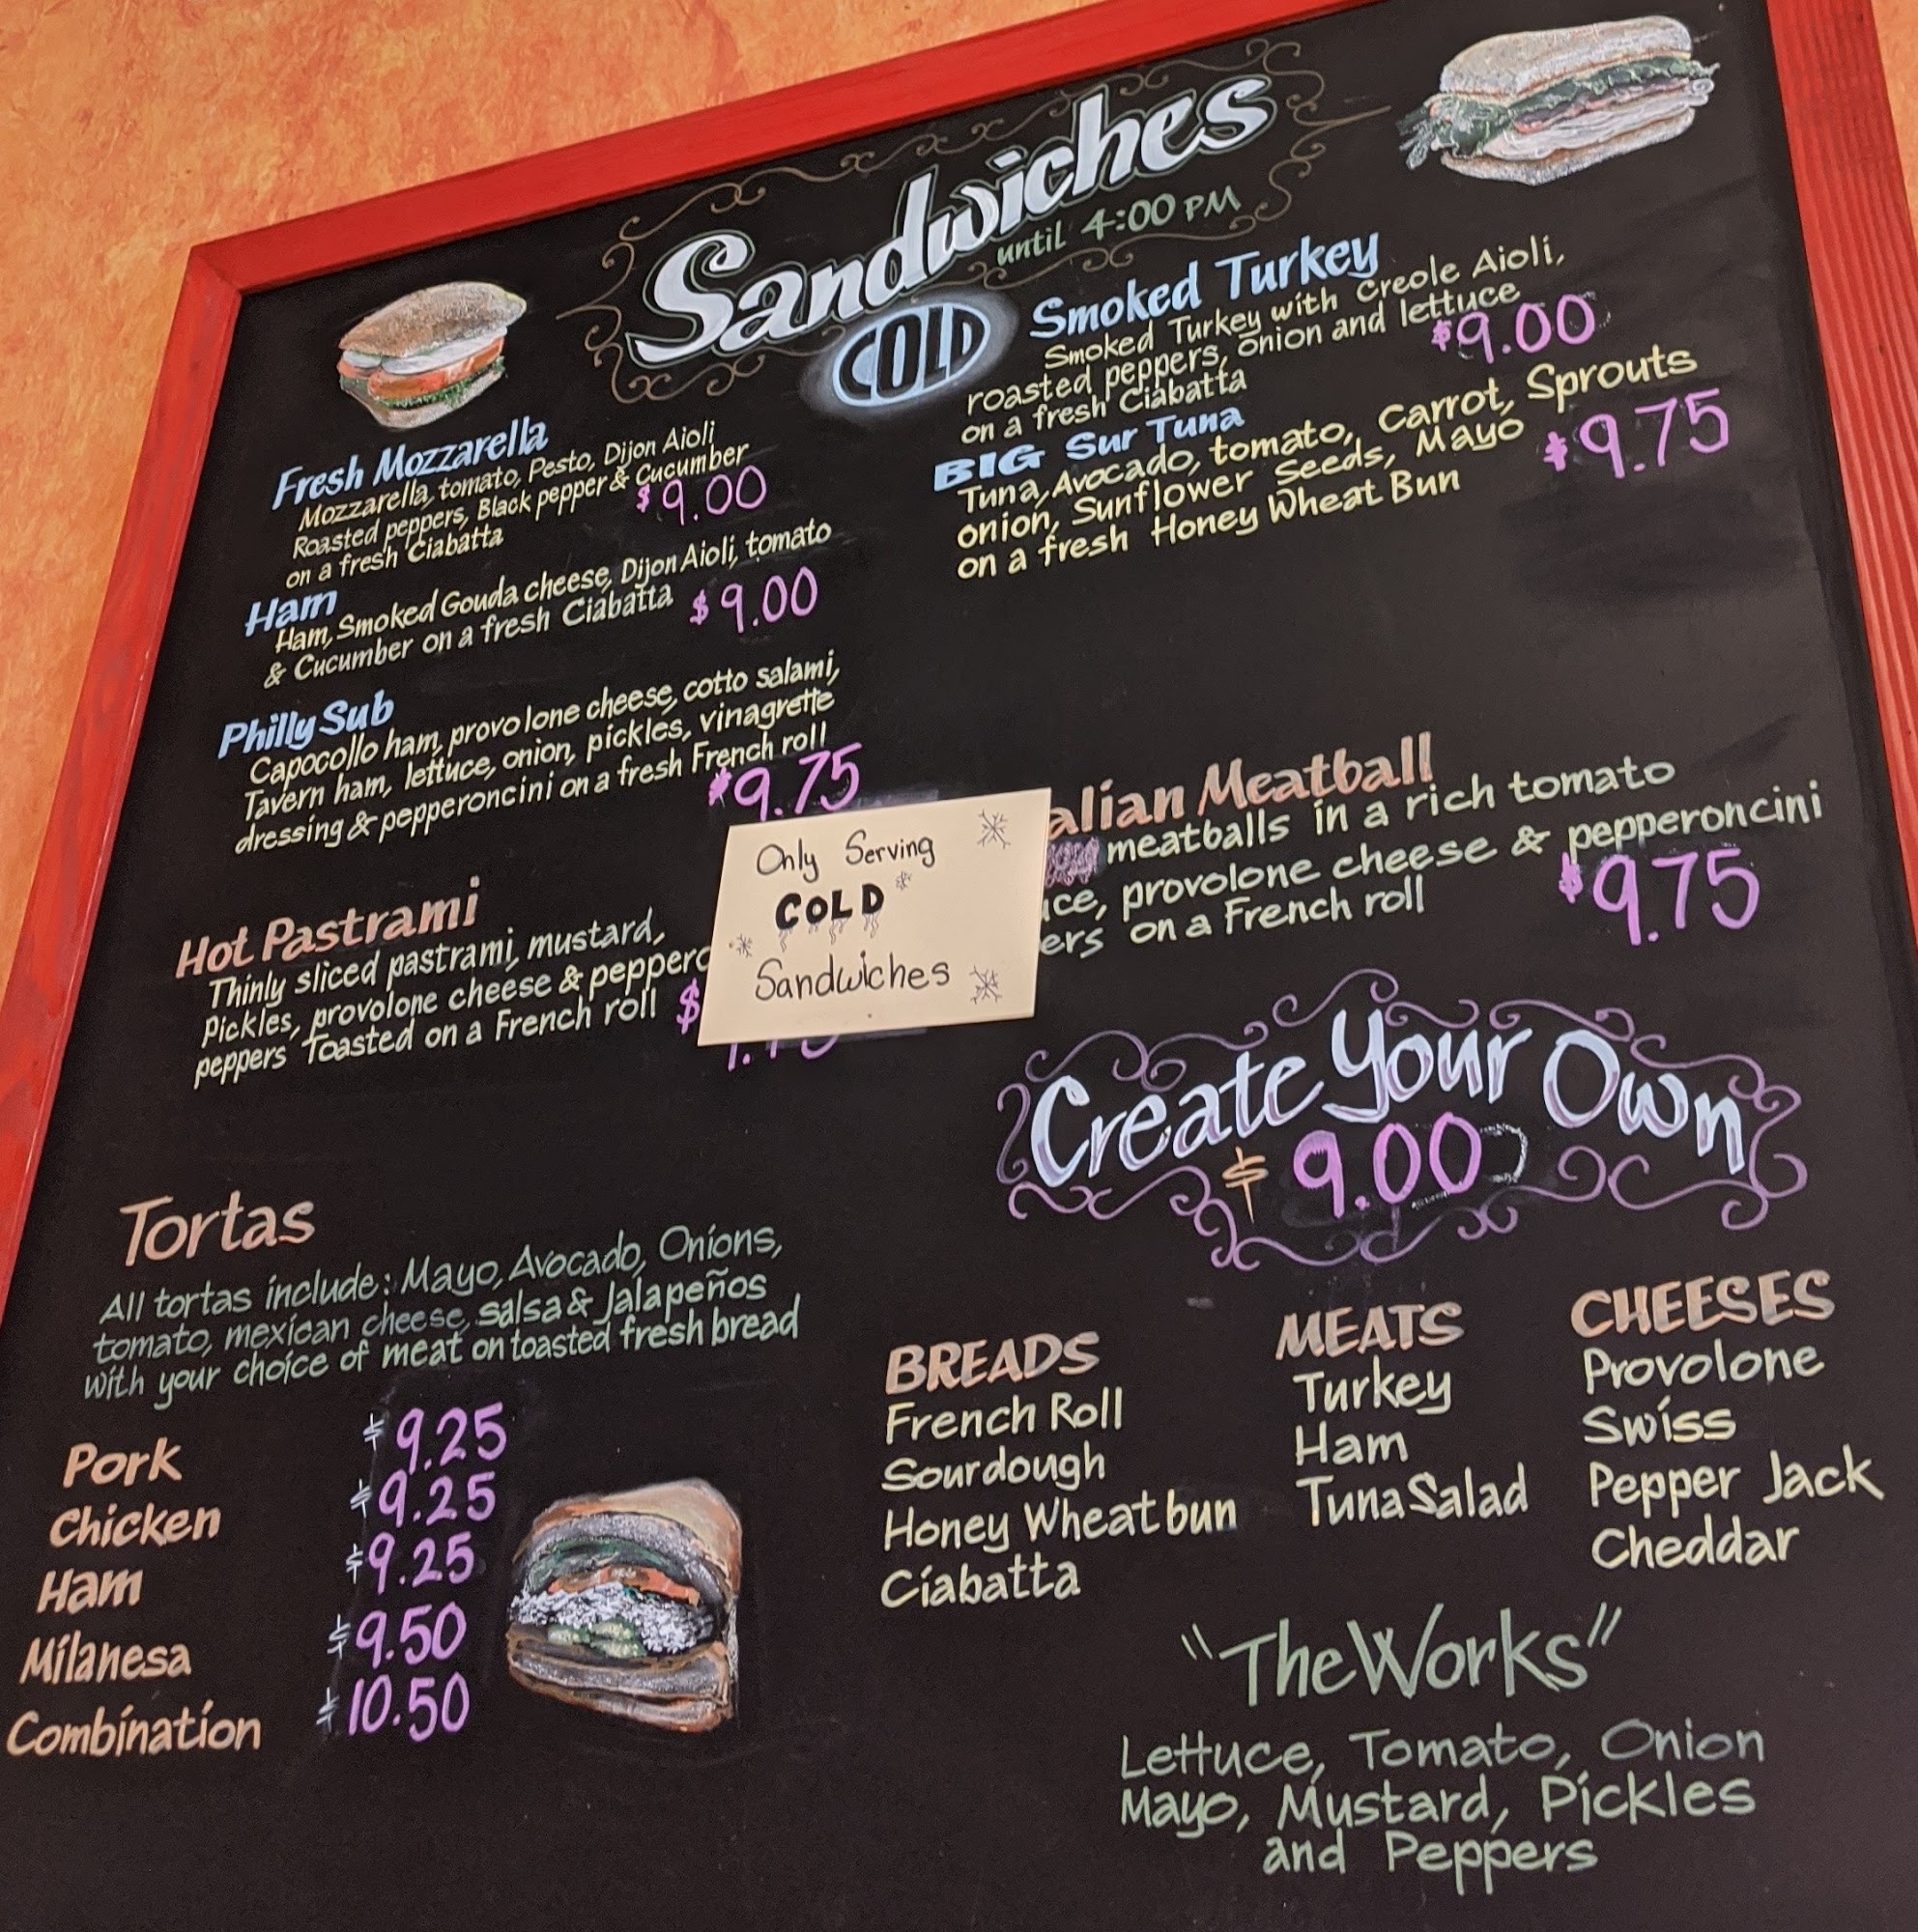 Sandwiches
until 4:00 PM
COLD
Fresh Mozzarella
Mozzarella, tomato, Pesto, Dijon Aioli
Roasted peppers, Black pepper & Cucumber
on a fresh Ciabatta
$9.00
Ham
Ham, Smoked Gouda cheese, Dijon Aioli, tomato
& Cucumber on a fresh Ciabatta $9.00
Philly Sub
Capocollo ham, provolone cheese, cotto salami,
Tavern ham, lettuce, onion, pickles, vinagrette
dressing & pepperoncini on a fresh French roll
$9.75
Smoked Turkey
Smoked Turkey with Creole Aioli,
roasted peppers, onion and lettuce
on a fresh Ciabatta
$9.00
BIG Sur Tuna
Tuna, Avocado, tomato, Carrot, Sprouts
onion, Sunflower Seeds, Mayo
on a fresh Honey Wheat Bun
$9.75
Only Serving
COLD
Sandwiches
Hot Pastrami
Thinly sliced pastrami, mustard,
Pickles, provolone cheese &
peppers Toasted on a French roll $
alian Meatball
meatballs in a rich tomato
uce, provolone cheese & pepperoncini
ers on a French roll
$9.75
Tortas
All tortas include: Mayo, Avocado, Onions,
tomato, mexican cheese, salsa & Jalapeños
with your choice of meat on toasted fresh bread
Pork $9.25
Chicken $9.25
Ham $9.25
Milanesa $9.50
Combination $10.50
Create Your Own
$9.00
BREADS
French Roll
Sourdough
Honey Wheat bun
Ciabatta
MEATS
Turkey
Ham
Tuna Salad
CHEESES
Provolone
Swiss
Pepper Jack
Cheddar
"The Works"
Lettuce, Tomato, Onion
Mayo, Mustard, Pickles
and Peppers